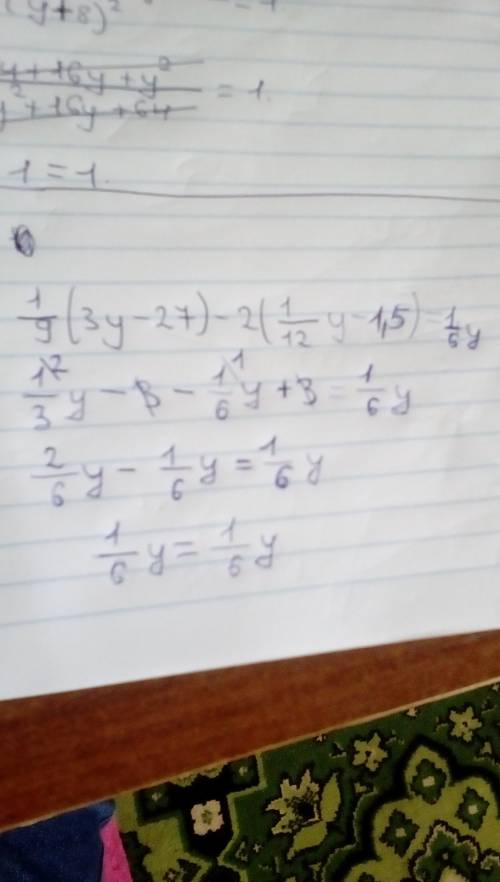 (y+8)²
y+16y+y² / y²+16y+64 = 1.
1 = 1.
1/9 (3y-27) - 2(1/12 y - 1,5) = 1/6 y
1/3 ² y - 3 - 1/6 ¹ y + 3 = 1/6 y
2/6 y - 1/6 y = 1/6 y
1/6 y = 1/6 y